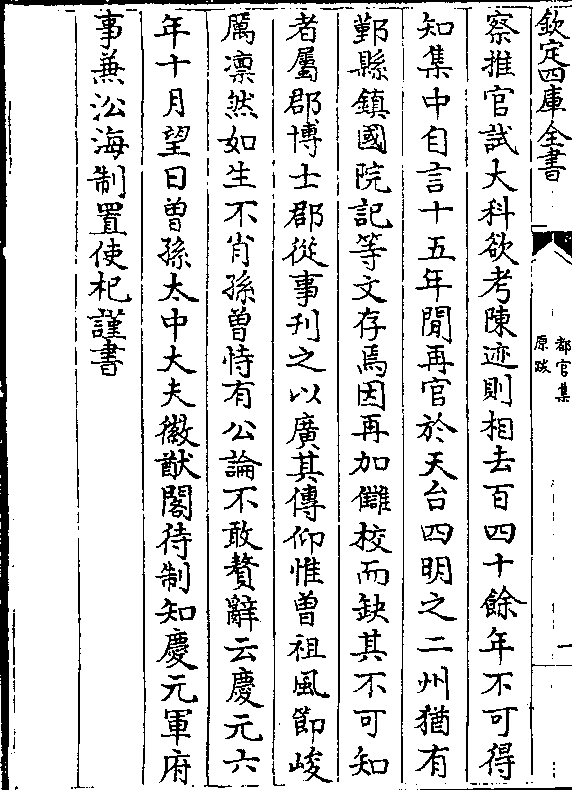 欽定四庫全書
都官集
原跋
一
察推官試大科欲考陳迹則相去百四十餘年不可得
知集中自言十五年間再官於天台四明之二州猶有
鄞縣鎮國院記等文存焉因再加讎校而缺其不可知
者屬郡博士郡從事刋之以廣其傳仰惟曾祖風節峻
厲凛然如生不肖孫曽恃有公論不敢贅辭云慶元六
年十月望日曽孫太中大夫徽猷閣待制知慶元軍府
事兼㳂海制置使杞謹書